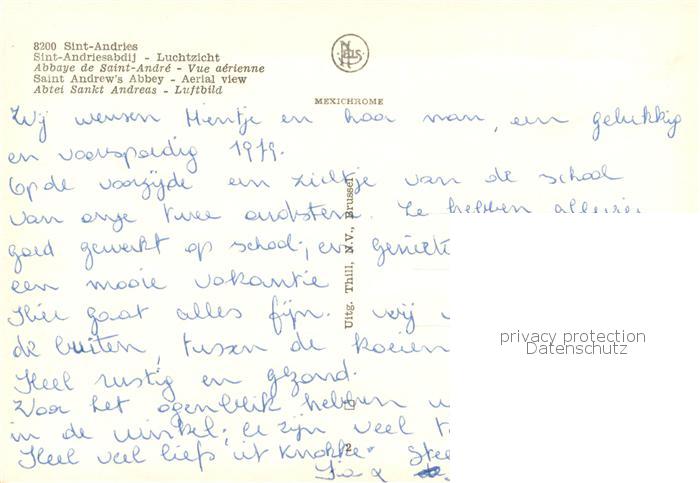 8200 Sint-Andries
Sint-Andriesabdij - Luchtzicht
Abbaye de Saint-André - Vue aérienne
Saint Andrew's Abbey - Aerial view
Abtei Sankt Andreas - Luftbild
NELS
MEXICHROME
Wij wensen Mientje en haar man, een gelukkig
en voorspoedig 1979.
Op de voorzijde een zichtje van de school
van onze twee oudsten. Ze hebben
goed gewerkt op school; en
een mooie vakantie
Hier gaat alles fijn. Wij
de buiten, tussen de koeien
Heel rustig en gezond.
Voor het ogenblik hebben
in de winkel; er zijn veel
Heel veel liefs uit Knokke
Uitg. Thill, N.V., Brussel
2
privacy protection
Datenschutz